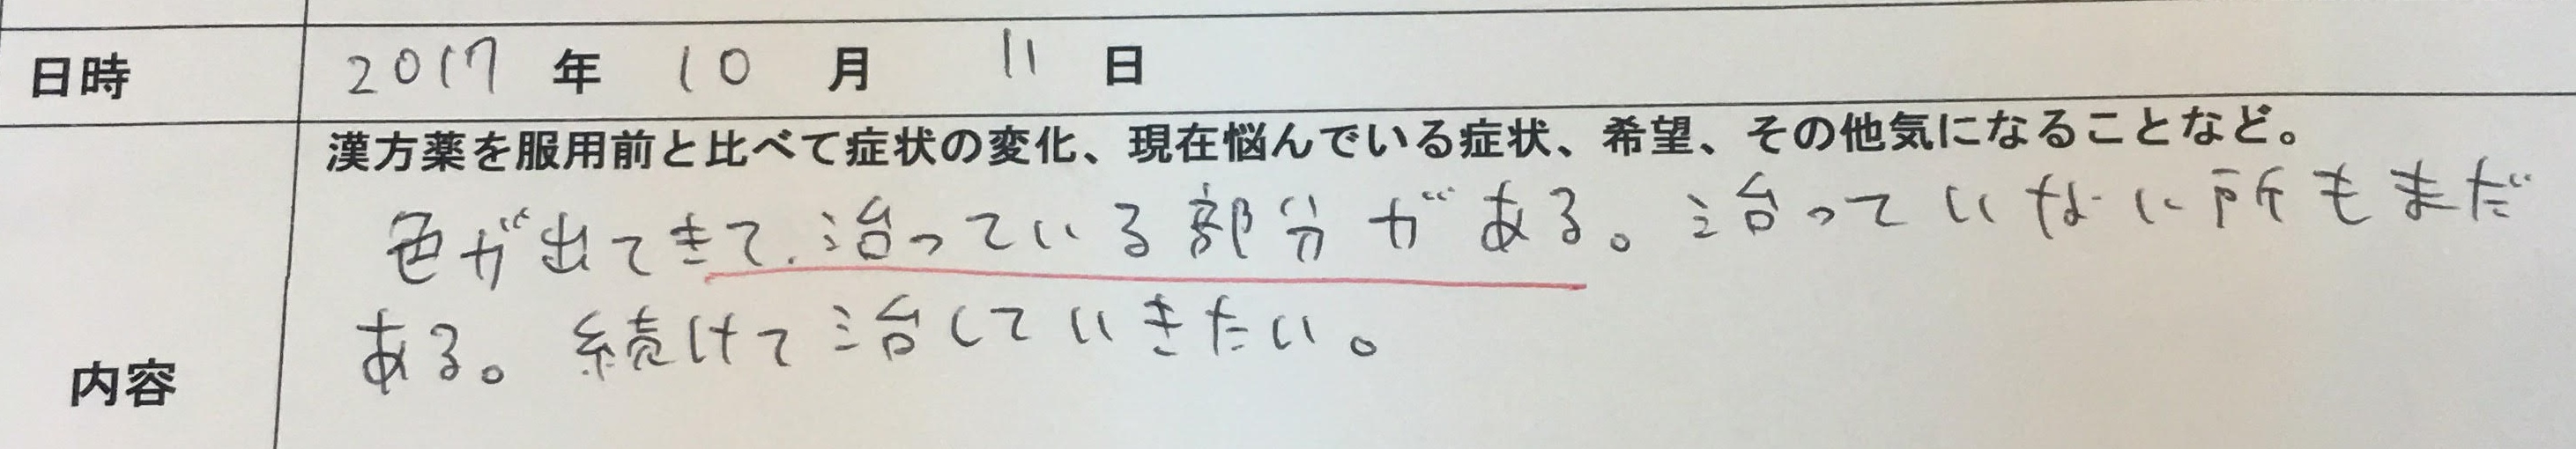 日時 2017年 10月 11日
漢方薬を服用前と比べて症状の変化、現在悩んでいる症状、希望、その他気になることなど。
色が出てきて、治っている部分がある。治っていない所もまだ
ある。続けて治していきたい。
内容